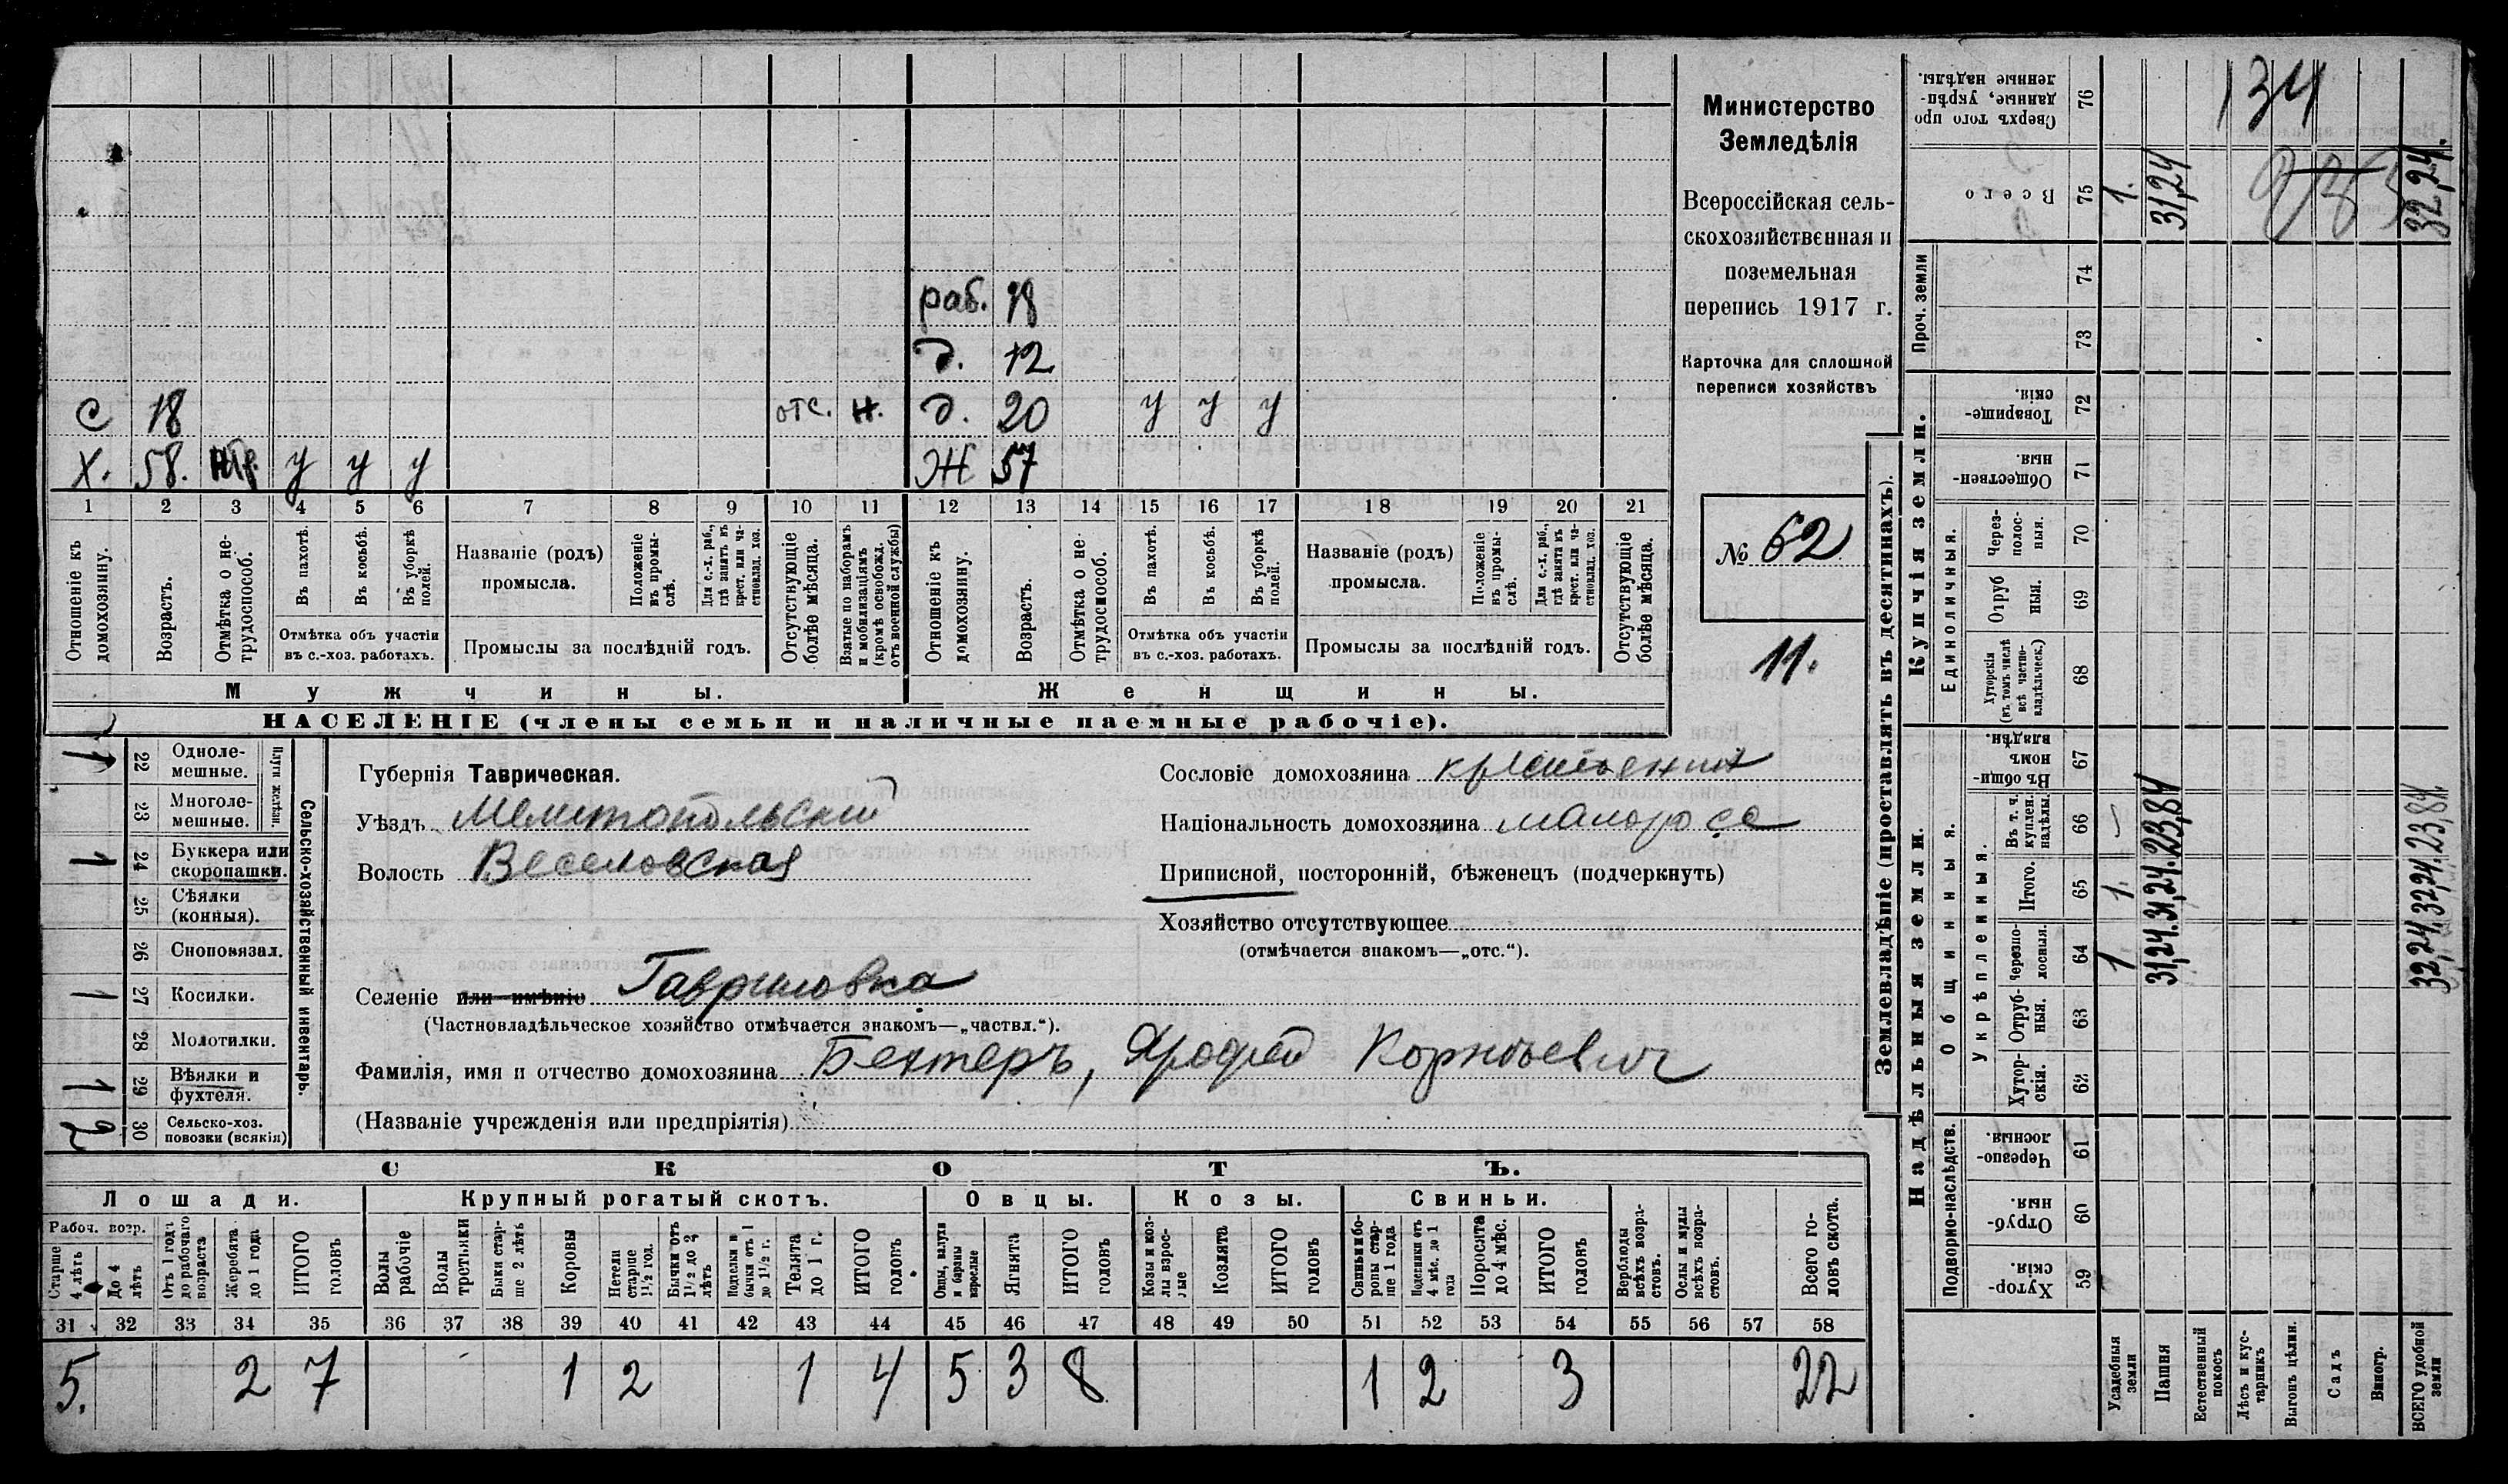 Министерство
Земледѣлія
Всероссійская сель-
скохозяйственная и
поземельная
перепись 1917 г.
Карточка для сплошной
переписи хозяйствъ
№ 62
11.
раб. 18
д. 12
С 18 отс. н. д. 20 у у у
Х. 58. нтр. у у у Ж 57
1 2 3 4 5 6 7 8 9 10 11 12 13 14 15 16 17 18 19 20 21
Отношеніе къ домохозяину.
Возрастъ.
Отмѣтка о не-трудоспособ.
Въ пахотѣ.
Въ косьбѣ.
Въ уборкѣ полей.
Отмѣтка объ участіи
въ с.-хоз. работахъ.
Названіе (родъ)
промысла.
Положеніе въ промы-слѣ.
Для с.-х. раб., гдѣ занятъ въ крест. или ча-стновлад. хоз.
Промыслы за послѣдній годъ.
Отсутствующіе болѣе мѣсяца.
Взятые по наборамъ и мобилизаціямъ (кромѣ освобожд. отъ военной службы)
Отношеніе къ домохозяину.
Возрастъ.
Отмѣтка о не-трудоспособ.
Въ пахотѣ.
Въ косьбѣ.
Въ уборкѣ полей.
Отмѣтка объ участіи
въ с.-хоз. работахъ.
Названіе (родъ)
промысла.
Положеніе въ промы-слѣ.
Для с.-х. раб., гдѣ занята въ крест. или ча-стновлад. хоз.
Промыслы за послѣдній годъ.
Отсутствующіе болѣе мѣсяца.
Мужчины. Женщины.
НАСЕЛЕНІЕ (члены семьи и наличные наемные рабочіе).
Сельско-хозяйственный инвентарь.
Плуги желѣзн.
1 22 Одноле-мешные.
23 Многоле-мешные.
1 24 Буккера или скоропашки.
25 Сѣялки (конныя).
26 Сноповязал.
1 27 Косилки.
28 Молотилки.
1 29 Вѣялки и фухтеля.
2 30 Сельско-хоз. повозки (всякія)
Губернія Таврическая.
Уѣздъ Мелитопольскій
Волость Веселовская
Сословіе домохозяина крестьянин
Національность домохозяина малоросс
Приписной, посторонній, бѣженецъ (подчеркнуть)
Хозяйство отсутствующее
(отмѣчается знакомъ—„отс.“).
Селеніе или имѣніе Гавриловка
(Частновладѣльческое хозяйство отмѣчается знакомъ—„частвл.“).
Фамилія, имя и отчество домохозяина Бехтеръ, Ярофей Корньевич
(Названіе учрежденія или предпріятія)
СКОТЪ.
Лошади. Крупный рогатый скотъ. Овцы. Козы. Свиньи.
Рабоч. возр.
Старше 4 лѣтъ
До 4 лѣтъ
Отъ 1 года до рабочаго возраста
Жеребята до 1 года
ИТОГО головъ
Волы рабочіе
Волы третьяки
Быки стар-ше 2 лѣтъ
Коровы
Нетели старше 1½ год.
Бычки отъ 1½ до 2 лѣтъ
Подтелки и бычки отъ 1 до 1½ г.
Телята до 1 г.
ИТОГО головъ
Овцы, валухи и бараны взрослые
Ягнята
ИТОГО головъ
Козы и коз-лы взрос-лые
Козлята
ИТОГО головъ
Свиньи и бо-ровы стар-ше 1 года
Подсвинки отъ 4 мѣс. до 1 года
Поросята до 4 мѣс.
ИТОГО головъ
Верблюды всѣхъ возра-стовъ.
Ослы и мулы всѣхъ возра-стовъ.
Всего го-ловъ скота.
31 32 33 34 35 36 37 38 39 40 41 42 43 44 45 46 47 48 49 50 51 52 53 54 55 56 57 58
5. 2 7 1 2 1 4 5 3 8 1 2 3 22
Землевладѣніе (проставлять въ десятинахъ).
Сверхъ того про данные, укрѣп-ленные надѣлы. 76 134
Всего 75 1. 31,24 32,24.
Проч. земли 74
73
Купчія земли.
Товарище-скія. 72
Обществен-ныя. 71
Единоличныя.
Через-полос-ныя. 70
Отруб ныя. 69
Хуторскія (въ томъ числѣ всѣ частно-владѣльческ.) 68
Надѣльныя земли.
Въ общи-номъ владѣн. 67
Общинныя.
Укрѣпленныя.
Въ т. ч. куплен. надѣлы. 66 – 23,84 23,84
Итого. 65 1. 31,24. 32,24.
Черезпо-лосныя. 64 1 31,24. 32,24
Отруб-ныя. 63
Хутор-скія. 62
Подворно-наслѣдств.
Черезпо-лосныя. 61
Отруб-ныя. 60
Хутор-скія. 59
Усадебныя земли
Пашня
Естественный покосъ
Лѣсъ и кус-тарникъ
Выгонъ цѣлин.
Садъ
Виногр.
ВСЕГО удобной земли